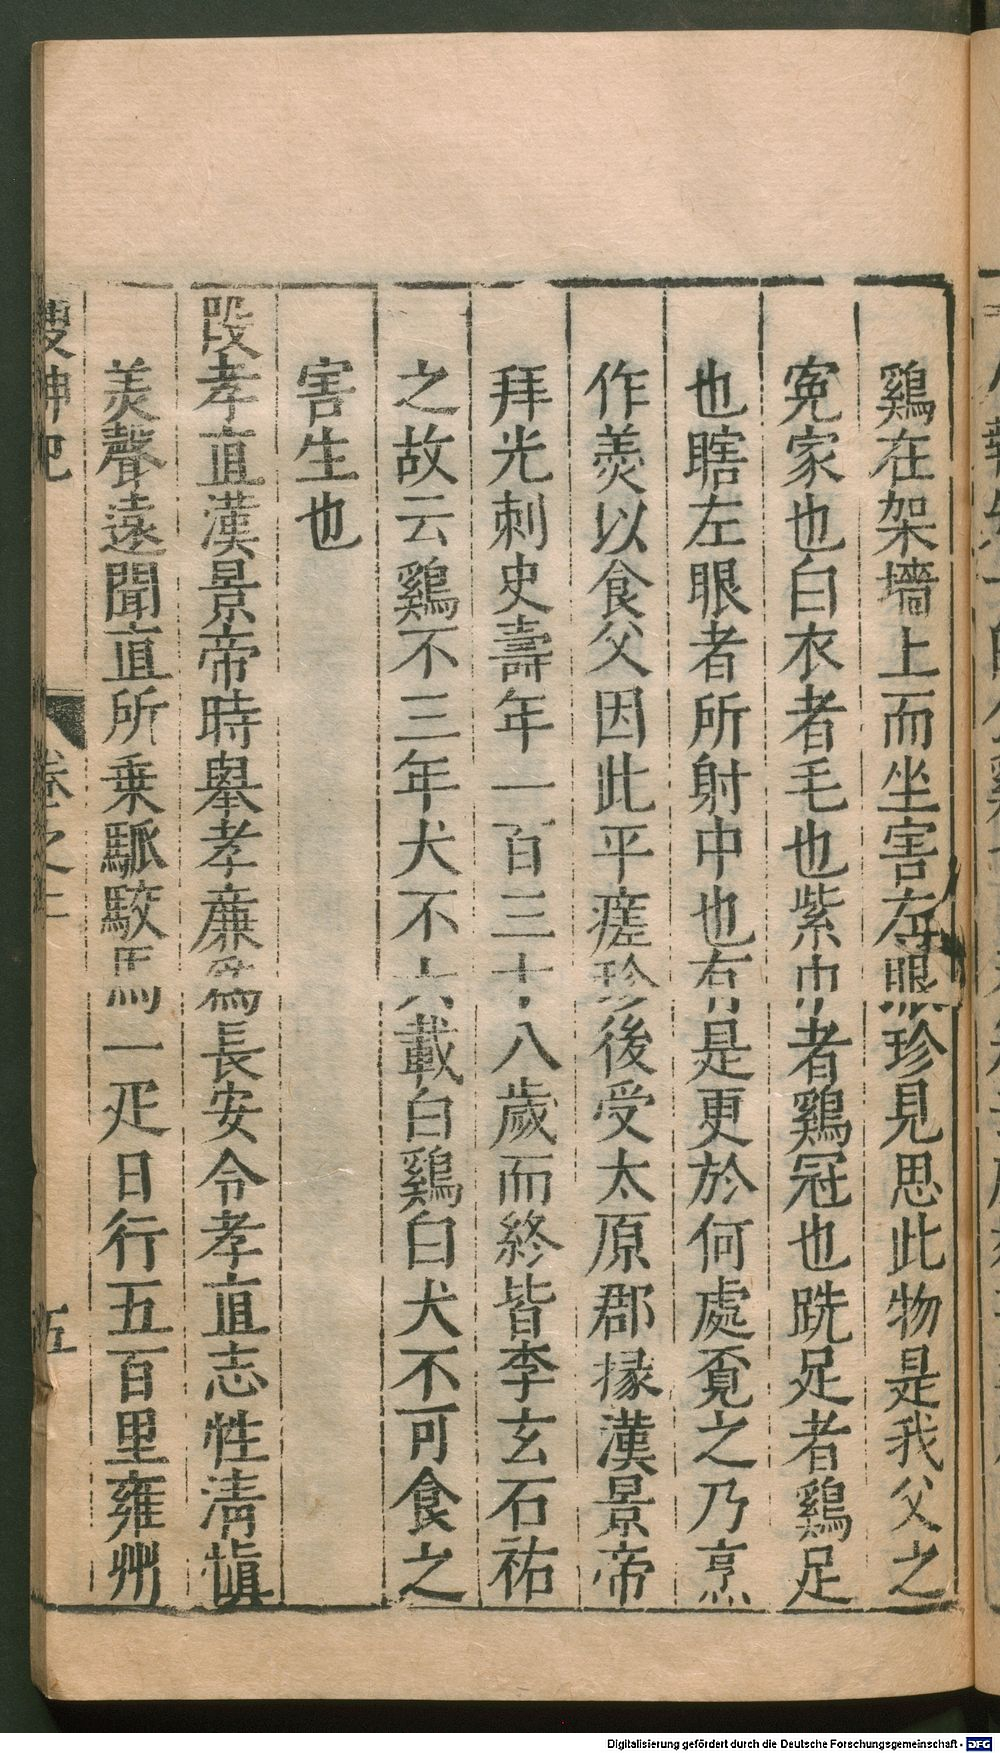 鷄在架墻上而坐害左眼珍見思此物是我父之
寃家也白衣者毛也紫巾者鷄冠也跣足者鷄足
也瞎左眼者所射中也有是更於何處覔之乃烹
作羮以食父因此平瘥珍後受太原郡掾漢景帝
拜光刺史壽年一百三十八歲而終皆李玄石祐
之故云鷄不三年犬不六載白鷄白犬不可食之
害生也
段孝直漢景帝時舉孝亷為長安令孝直志性淸愼
羙聲遠聞直所乗駵駮馬一疋日行五百里雍州
搜神記 卷之 五
Digitalisierung gefördert durch die Deutsche Forschungsgemeinschaft - DFG